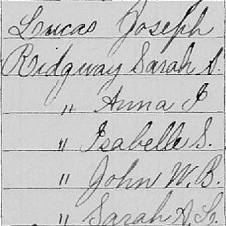 Lucas Joseph
Ridgway Sarah S.
" Anna J
" Isabelle S.
" John W. B.
" Sarah A. L.